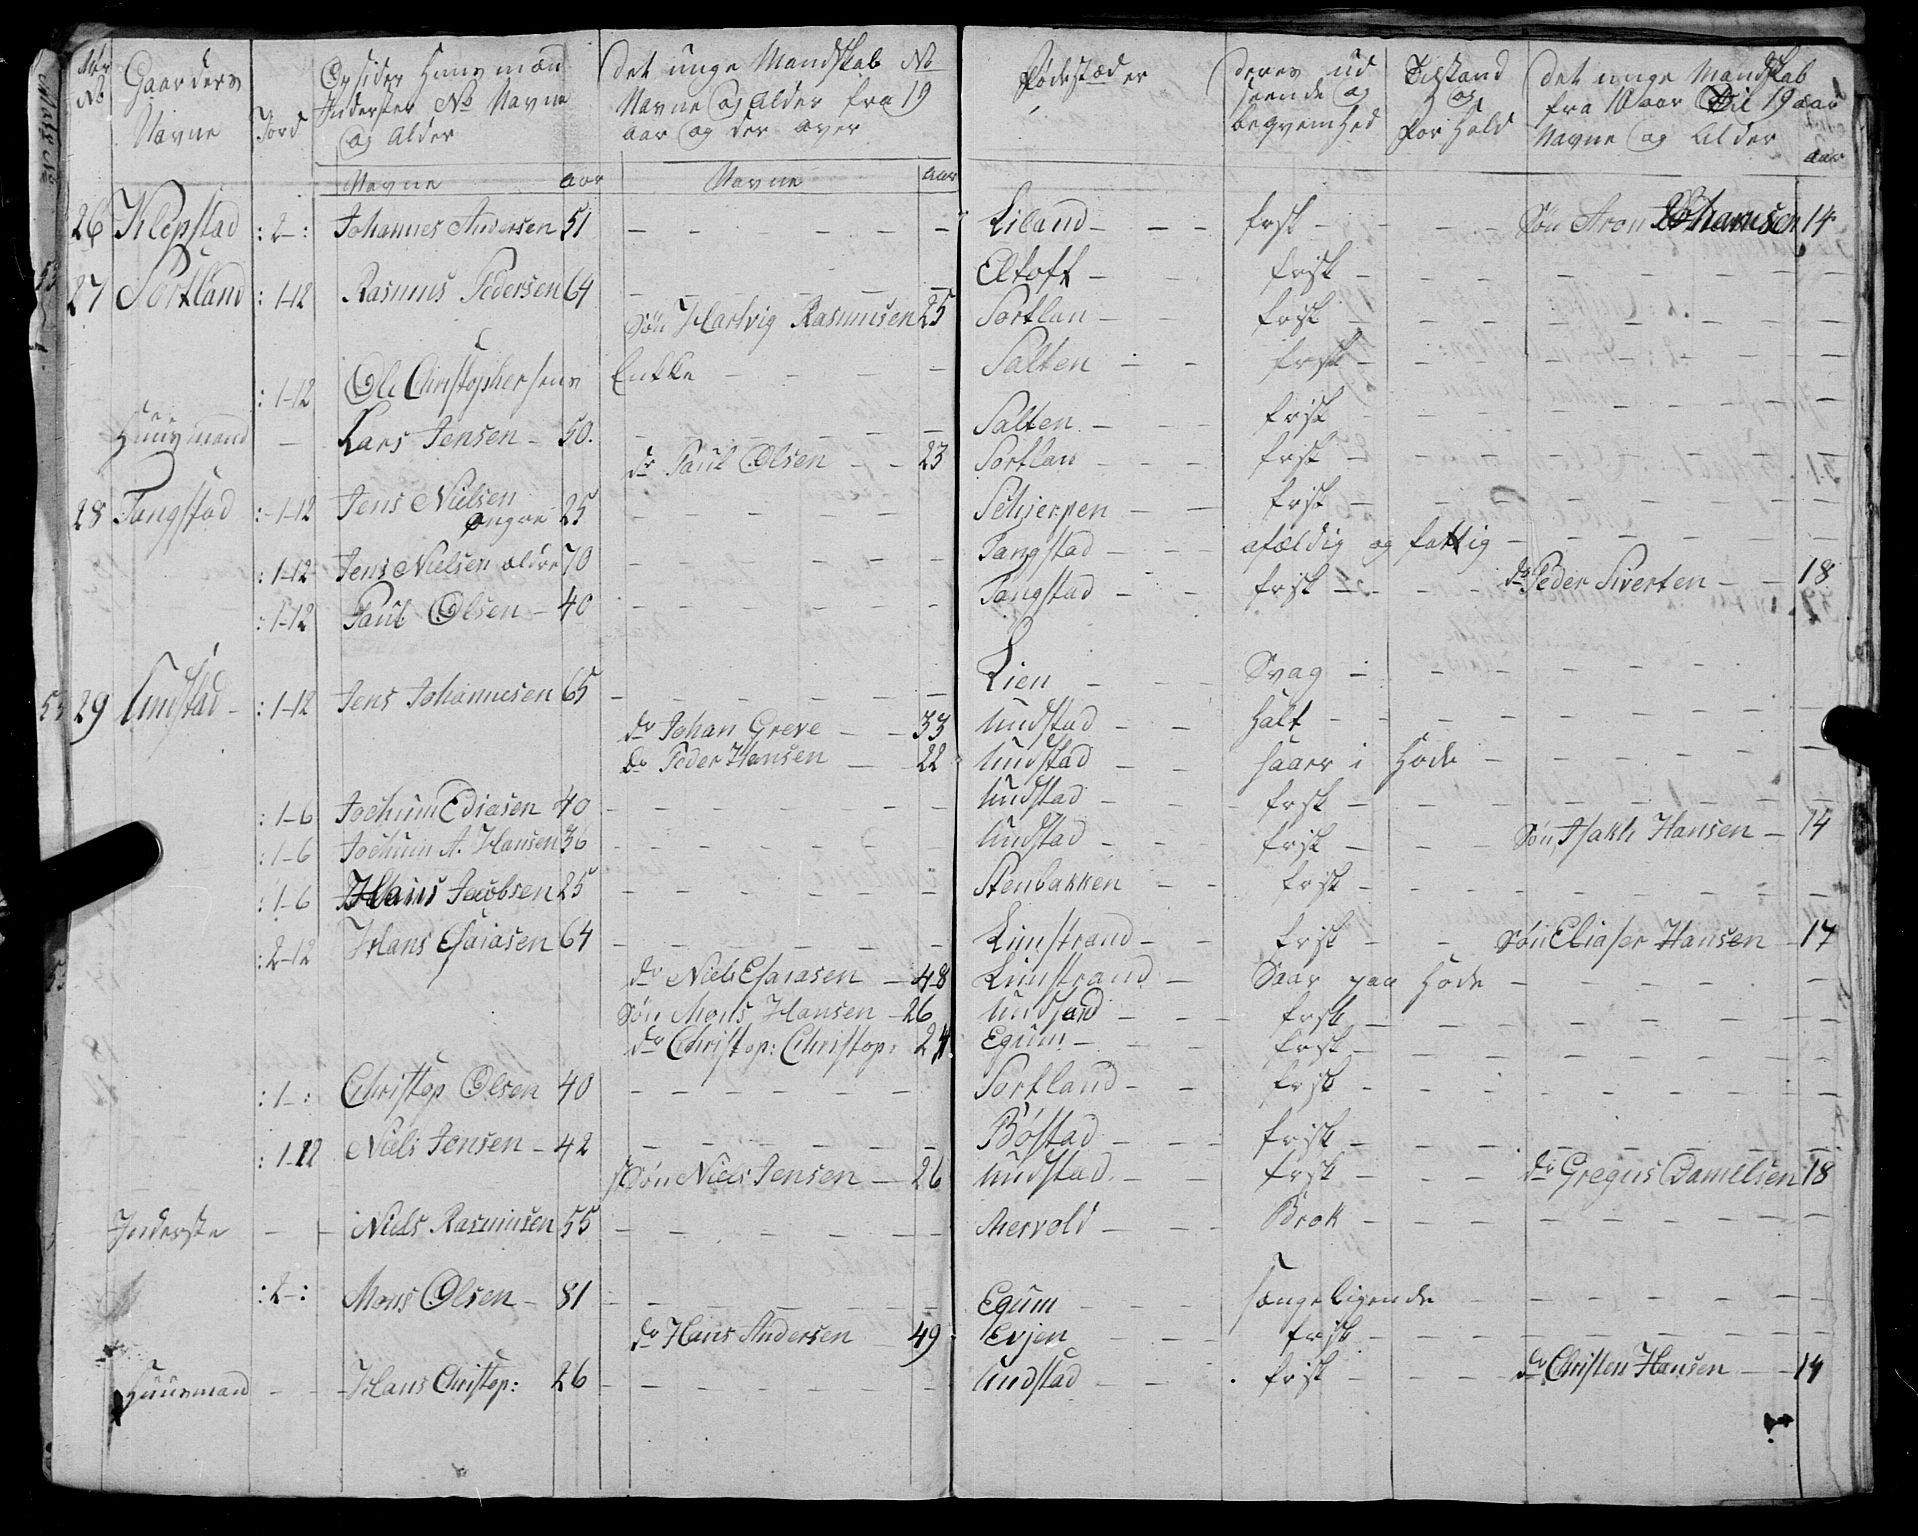 Mtr No Gaarders Navne Jord Opsider Huusmænd Inderster No Navne og Alder Det unge Mandskab No Navne og Alder fra 19 aar og der over Fødestæder deres ud seende og beqvemhed Tilstand og Forhold Det unge Mandskab fra 10 aar Til 19 aar Navne og Alder
Navne aar Navne aar aar
26 Klepstad :2-: Johannes Andersen 51 — Liland — frsk — Søn Aron Johansen 14
27 Sortland :1-12 Rasmus Pedersen 64 — Eltoft — frisk —
Søn Hartvig Rasmusen 25 Sortlan — frisk —
:1-12 Ole Christophersens Enkke — Salten — frsk —
Huusmand — Lars Jensen — 50. — Salten — frisk —
do Paul Olsen — 23 Sortlan — frisk —
28 Tangstad :-1-12 Jens Nielsen yngre 25 — Schjerpen — frisk —
:1-12 Jens Nielsen ældre 70 — Tangstad — afældig og fattig —
:1-12 Paul Olsen — 40 — Tangstad — frisk — do Peder Siverten — 18
29 Undstad — :1-12 Jens Johannesen 65 — Lien — Svag —
do Johan Greve — 33 Undstad — Halt —
do Peder Hansen — 22 Undstad — saars i Hode —
:1-6 Jochum Ediasen 40 — Undstad — frsk —
:1-6 Jochum A. Hansen 36 — Undstad — frisk — Søn Isakk Hansen — 14
:1-6 Hans Jacobsen 25 — Stenbakken — frisk —
:2-12 Hans Esaiasen 64 — Limstrand — frisk — Søn Eliaser Hansen — 17
do Niels Esaiasen — 48 Limstrand — Saar paa Hode —
Søn Mons Hansen — 26 Undstad — frsk —
do Christop: Christop: 24. Egum — frsk —
:1-: Christop Olsen 40 — Sortland — frisk —
:1-12 Niels Jensen — 42 — Bøstad — frisk —
Søn Niels Jensen — 26 Undstad — frsk — do Gregus Danielsen 18
Inderste — Niels Rasmusen 55 — Mervold — Brok —
:2-: Mons Olsen — 81 — Egum — sængeligende —
do Hans Andersen 49 Evjen — frisk —
Huusmand — Hans Christop: 26 — Undstad — frisk — do Christen Hansen — 14